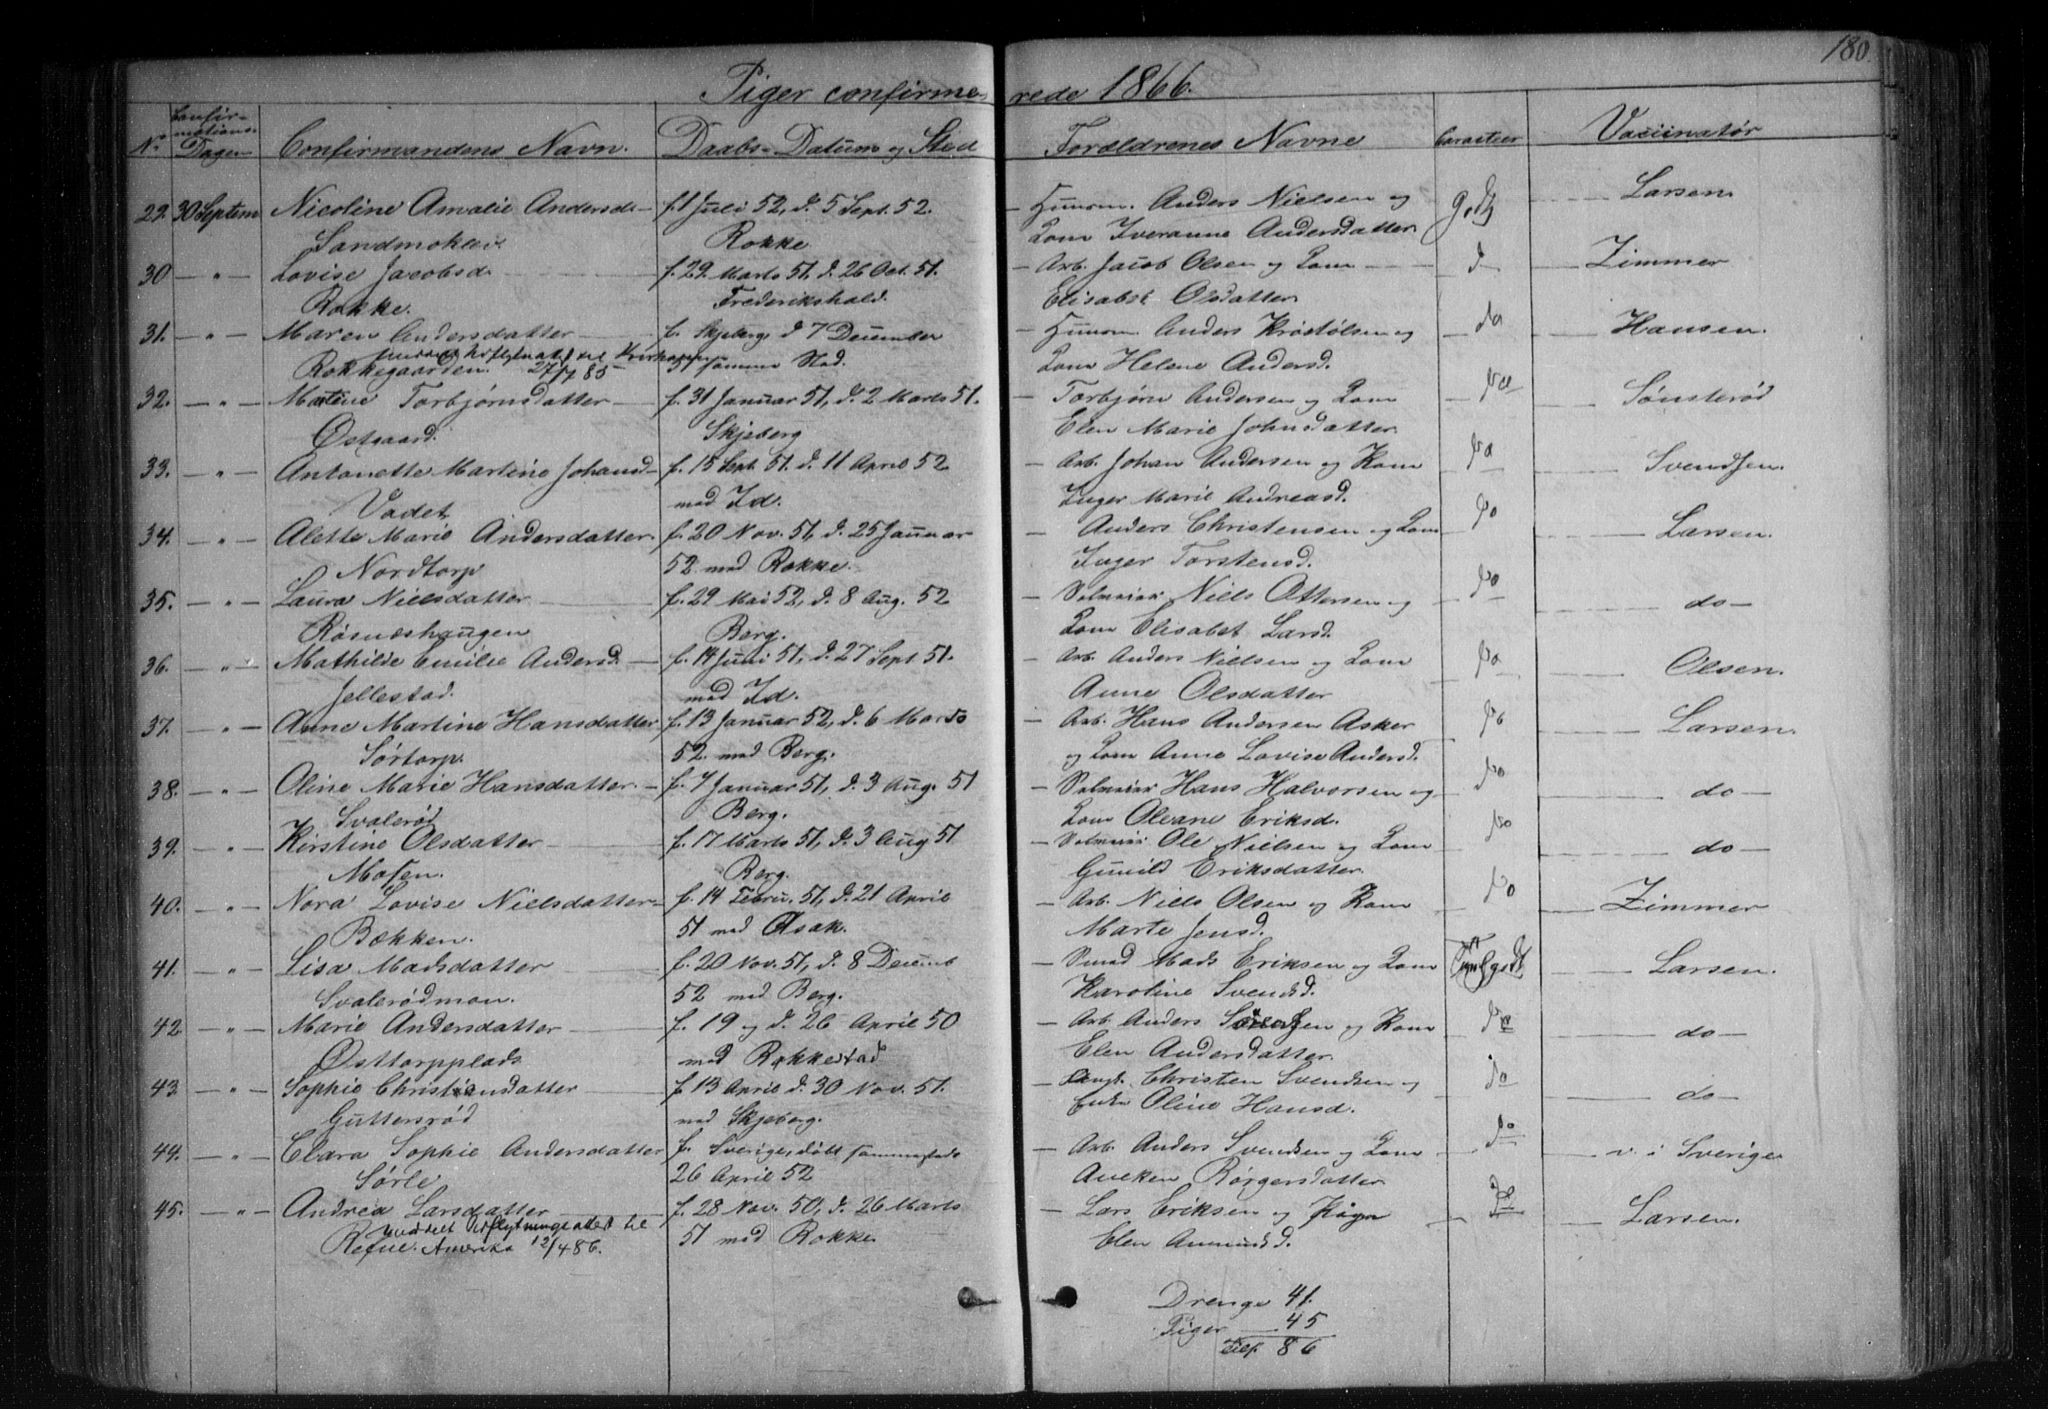 180.
Piger confirmerede 1866.
No Confirmations-Dagen Confirmandens Navn. Daabs-Datum og Sted Forældrenes Navne Caracteer Vaccinatør
29. 30 Septem Nicoline Amalie Andersd. f. 1 Juli 52, d. 5 Sept. 52. Huusm. Anders Nielsen og godt Larsen
Rokke. Kone Iveranne Andersdatter
30 - " - Lovise Jacobsd. f. 29 Marts 51. d. 26 Oct. 51. Arb. Jacob Olsen og Kone d Zimmer
Rokke. Frederikshald. Elisabet Olsdatter
31. - " - Maren Andersdatter f. Skjeberg d 7 December Huusm. Anders Kristofsen og do Hansen.
Rokkegaarden. 27/7 85 51 samme Sted. Kone Helene Andersd.
32. - " - Martine Torbjørnsdatter f. 31 Januar 51, d. 2 Marts 51. Torbjørn Andersen og Kone do Sønsterød
Østgaard. Skjeberg Elen Marie Johnsdatter
33. - " - Antonette Martine Johansd f. 15 Sept. 51. d. 11 April 52 Arb. Johan Andersen og Kone do Svendsen.
Vadet med Id. Inger Marie Andreasd.
34. - " - Alette Marie Andersdatter. f. 20 Nov. 51, d. 25 Januar Anders Christensen og Kone do Larsen.
Nordtorp 52. med Rokke. Inger Torstensd.
35. - " - Laura Nielsdatter f. 29 Mai 52, d. 8 Aug. 52 Selveier Niels Ottersen og do do -
Røsneshaugen Berg. Kone Elisabet Larsd.
36. - " - Mathilde Emilie Andersd. f. 14 Juni 51, d. 27 Sept 51. Arb. Anders Nielsen og Kone do Olsen.
Jellestad. med Id. Anne Olsdatter
37. - " - Anne Martine Hansdatter f. 13 Januar 52, d. 6 Marts Arb. Hans Andersen Asker do Larsen.
Sørtorp. 52. med Berg. og Kone Anne Lovise Andersd.
38. - " - Oline Marie Hansdatter. f. 7 Januar 51, d. 3 Aug. 51 Selveier Hans Halvorsen og do do -
Svalerød Berg. Kone Oleane Eriksd.
39. - " - Kirstine Olsdatter f. 17 Marts 51, d. 3 Aug 51 Selveier Ole Nielsen og Kone do do -
Mosen. Berg. Gunild Eriksdatter
40. - " - Nora Lovise Nielsdatter f. 14 Febru. 51, d. 21 April Arb. Niels Olsen og Kone do Zimmer
Bækken. 51 med Asak. Marte Jensd.
41. - " - Lisa Madsdatter f. 20 Nov. 51, d. 8 Decemb Smed Mads Eriksen og Kone godt Larsen.
Svalerødmon. 52 med Berg. Karoline Svendsd.
42 - " - Marie Andersdatter f. 19 og d. 26 April 50 Arb. Anders og Kone do do -
Østtorpplads med Rokkestad Elen Andersdatter
43. - " - Sophie Christiansdatter f. 13 April d. 30 Nov. 51. Christen Svendsen og do do -
Guttersrød med Skjeberg. Enke Oline Hansd.
44. - " - Clara Sophie Andersdatter f. Sverige, døbt sammesteds Arb. Anders Svendsen og Kone do v. i Sverige
Sørle 26 April 52 Aneken Børgersdatter
45. - " - Andrea Larsdatter f. 28 Nov. 50, d. 26 Marts Lars Eriksen og do Larsen.
meddelt Udflytningsattest til
Amerika 12/4 86. 51 med Rokke Elen
Drenge 41.
Piger 45
Tils. 86